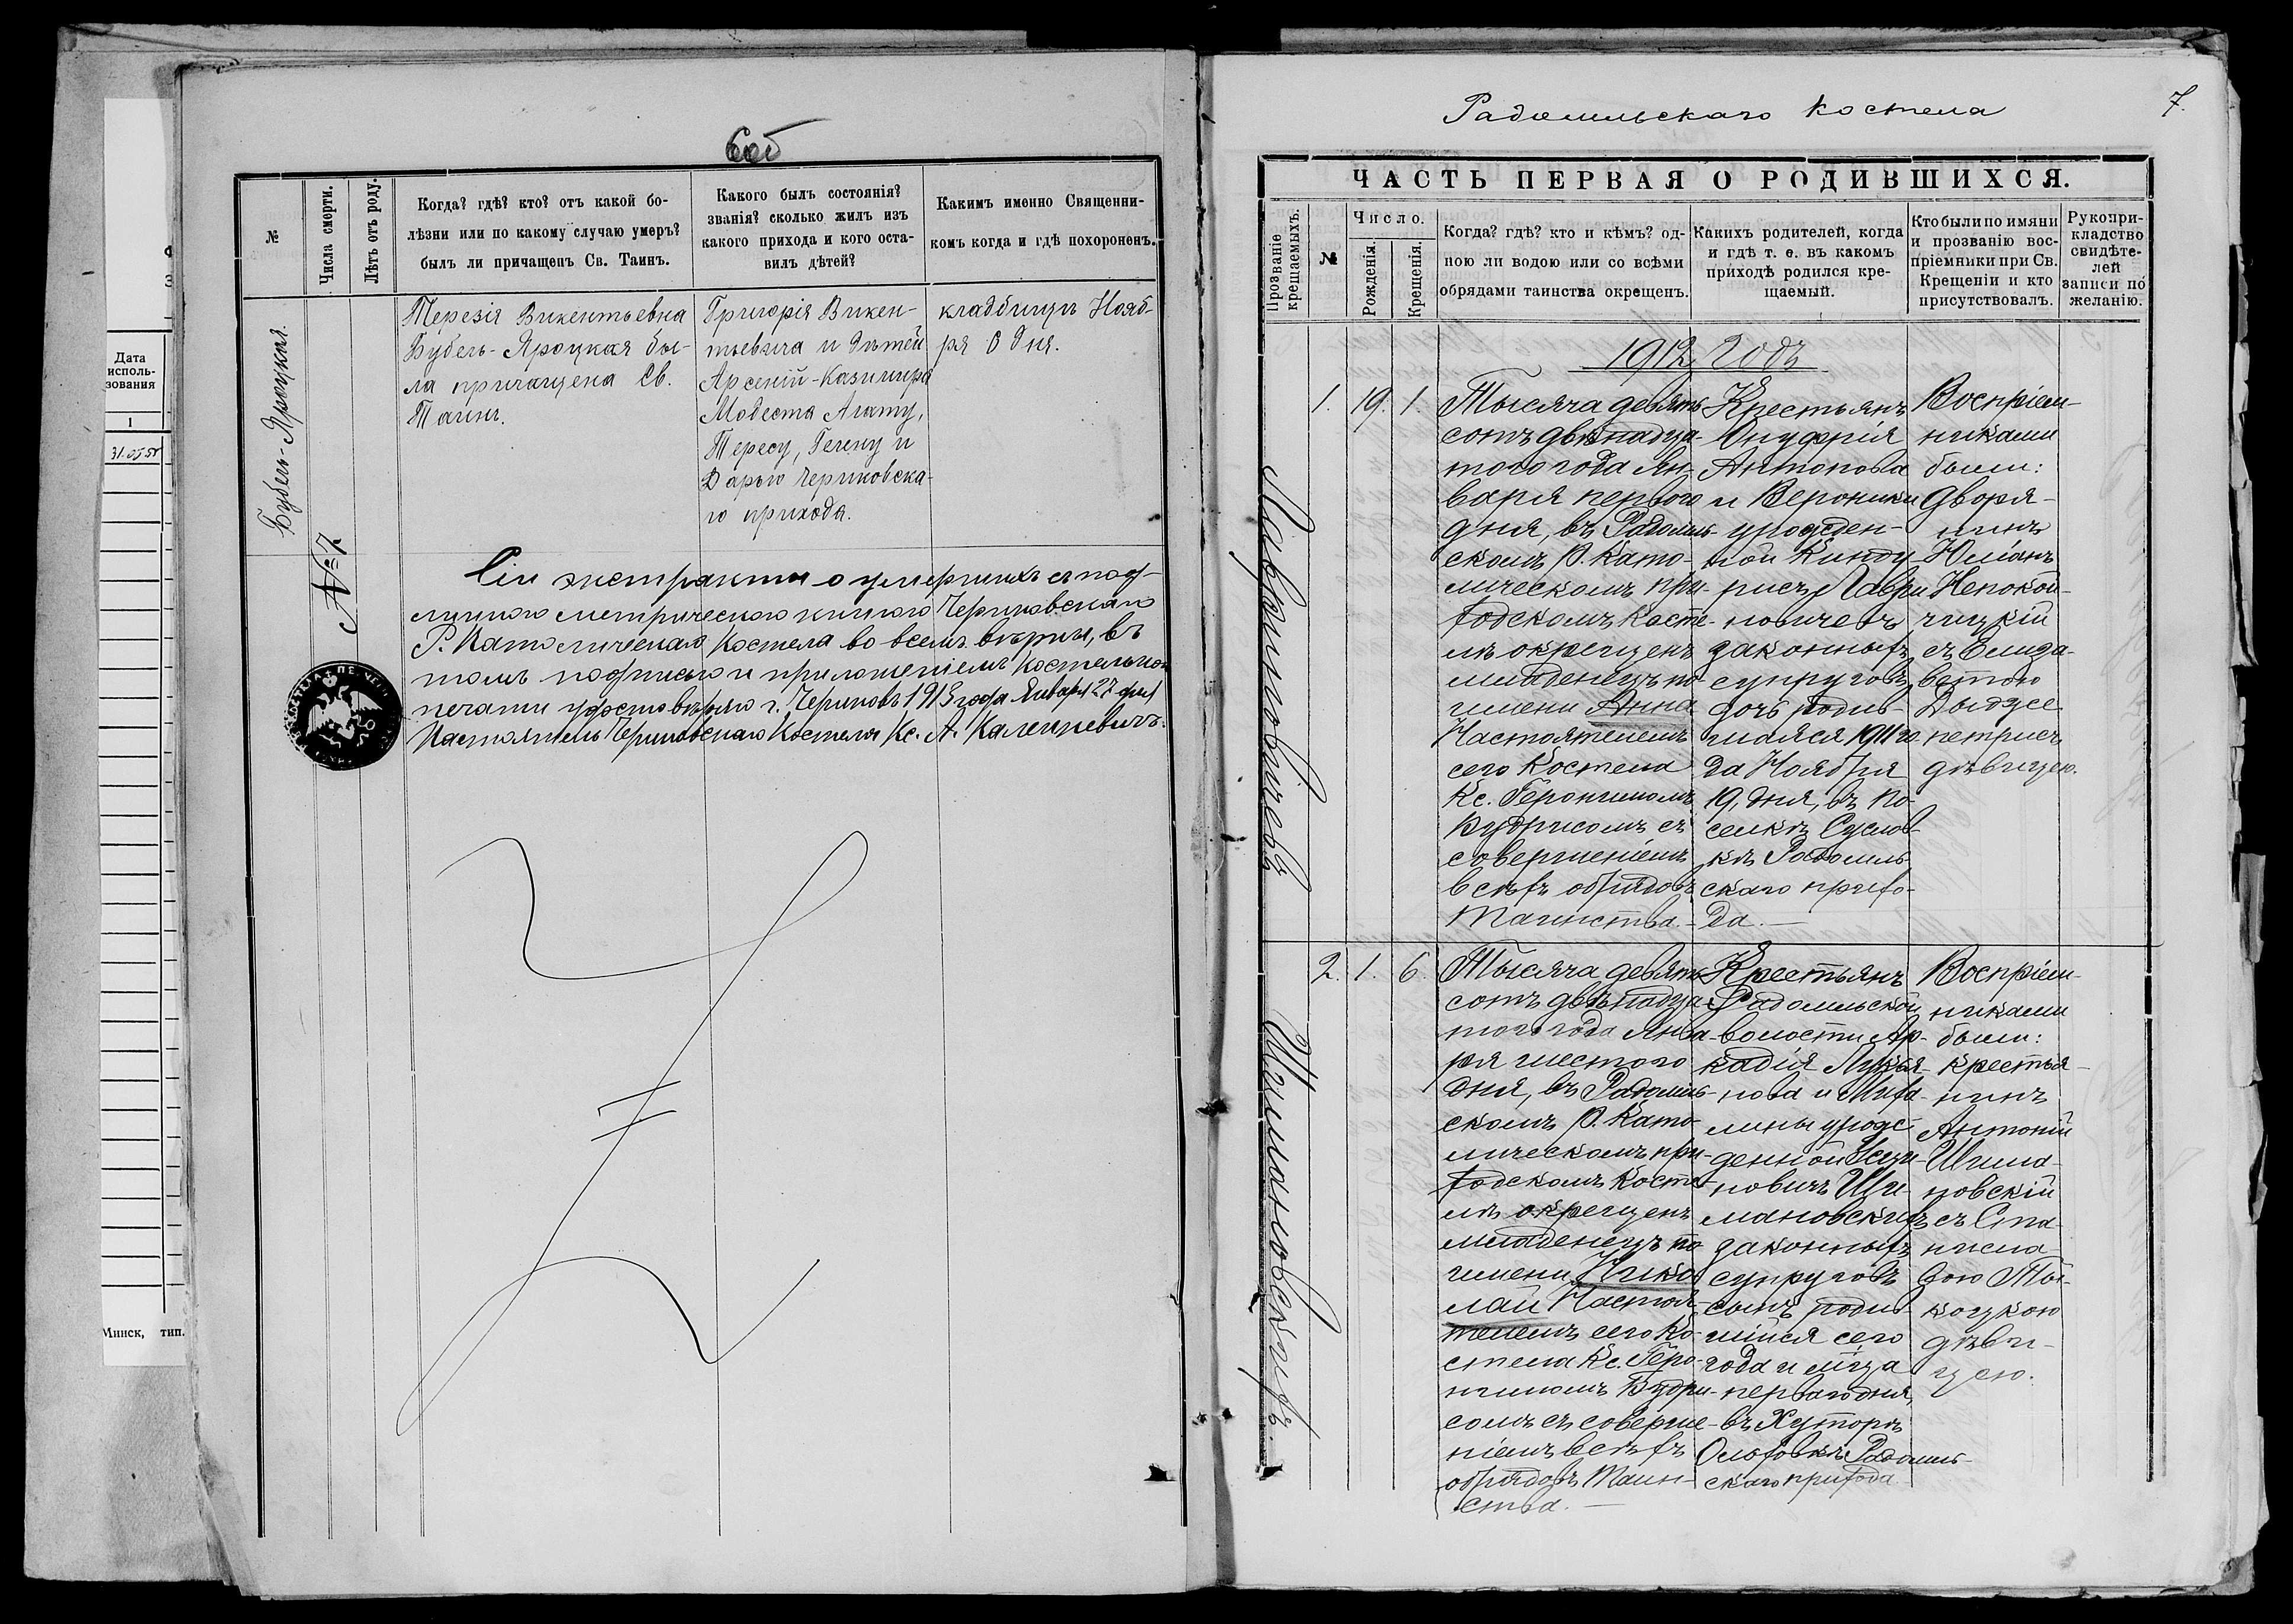 Дата
исполь-
зования
1
31.05.58
Минск, тип.
6об
№
Числа смерти.
Лѣтъ отъ роду.
Когда? гдѣ? кто? отъ какой бо-
лѣзни или по какому случаю умеръ?
былъ ли причащенъ Св. Таинъ.
Какого былъ состоянія?
званія? сколько жилъ изъ
какого прихода и кого оста-
вилъ дѣтей?
Какимъ именно Священни-
комъ когда и гдѣ похороненъ.
Бубель-Яроцкая.
Терезія Викентьевна
Бубель-Яроцкая бы-
ла причащена Св.
Таинъ.
Григорія Викен-
тьевича и дѣтей
Арсеній-Казимира
Модеста Агату,
Тересу, Гелену и
Дарью Чериковска-
го прихода.
кладбищѣ Нояб-
ря 8 дня.
№ 7.
Сіи экстракты о умершихъ съ под-
линною метрическою книгою Чериковскаго
Р. Католическаго Костела во всемъ вѣрны, въ
томъ подписью и приложеніемъ Костельной
печати удостовѣряю г. Чериковъ 1913 года Января 27 дня
Настоятель Чериковскаго Костела Кс. А. Календкевичъ.
Радомльскаго Костела
7.
ЧАСТЬ ПЕРВАЯ О РОДИВШИХСЯ.
Прозваніе
крещаемыхъ.
№
Число.
Рожденія.
Крещенія.
Когда? гдѣ? кто и кѣмъ? од-
ною ли водою или со всѣми
обрядами таинства окрещенъ.
Какихъ родителей, когда
и гдѣ т. е. въ какомъ
приходѣ родился кре-
щаемый.
Кто были по имяни
и прозванію вос-
пріемники при Св.
Крещеніи и кто
присутствовалъ.
Рукопри-
кладство
свидѣте-
лей
записи по
желанію.
1912 годъ
Лавриновичевъ
1.
19.
1.
Тысяча девять
сотъ двѣнадца-
того года Ян-
варя перваго
дня, въ Радомль-
скомъ Р. Като-
лическомъ при-
ходскомъ Косте-
лѣ окрещенъ
младенецъ по
имени Анна
Настоятелемъ
сего Костела
Кс. Геронимомъ
Будрисомъ съ
совершеніемъ
всѣхъ обрядовъ
Таинства.
Крестьянъ
Онуфрія
Антонова
и Вероники
урожден-
ной Кинду-
рисъ Лаври-
новичевъ
законныхъ
супруговъ
дочь родив-
шаяся 1911 го-
да Ноября
19, дня, въ по-
селкѣ Суслов-
кѣ Радомль-
скаго прихо-
да.
Воспріем-
никами
были:
дворя-
нинъ
Юліанъ
Непокой-
чицкій
съ Елиза-
ветою
Дыдже
петрисъ
дѣвицею.
Шимановскихъ.
2.
1.
6.
Тысяча девять
сотъ двѣнадца-
того года Янва-
ря шестого
дня, въ Радомль-
скомъ Р. Като-
лическомъ при-
ходскомъ Косте-
лѣ окрещенъ
младенецъ по
имени Нико-
лай Настоя-
телемъ сего Ко-
стела Кс. Геро-
нимомъ Будри-
сомъ съ соверше-
ніемъ всѣхъ
обрядовъ Таин-
ства.
Крестьянъ
Радомльской
волости Ар-
кадія Лукья-
нова и Миха-
лины урож-
денной
новичъ Ши-
мановскихъ
законныхъ
супруговъ
сынъ родив-
шійся сего
года и м-ца
перваго дня,
въ Хуторѣ
Ольховкѣ Радомль-
скаго прихода
Воспріем-
никами
были:
крестья-
нинъ
Антоній
Шима-
новскій
съ Ста-
нисла-
вою Мы-
коцкою
дѣви-
цею.